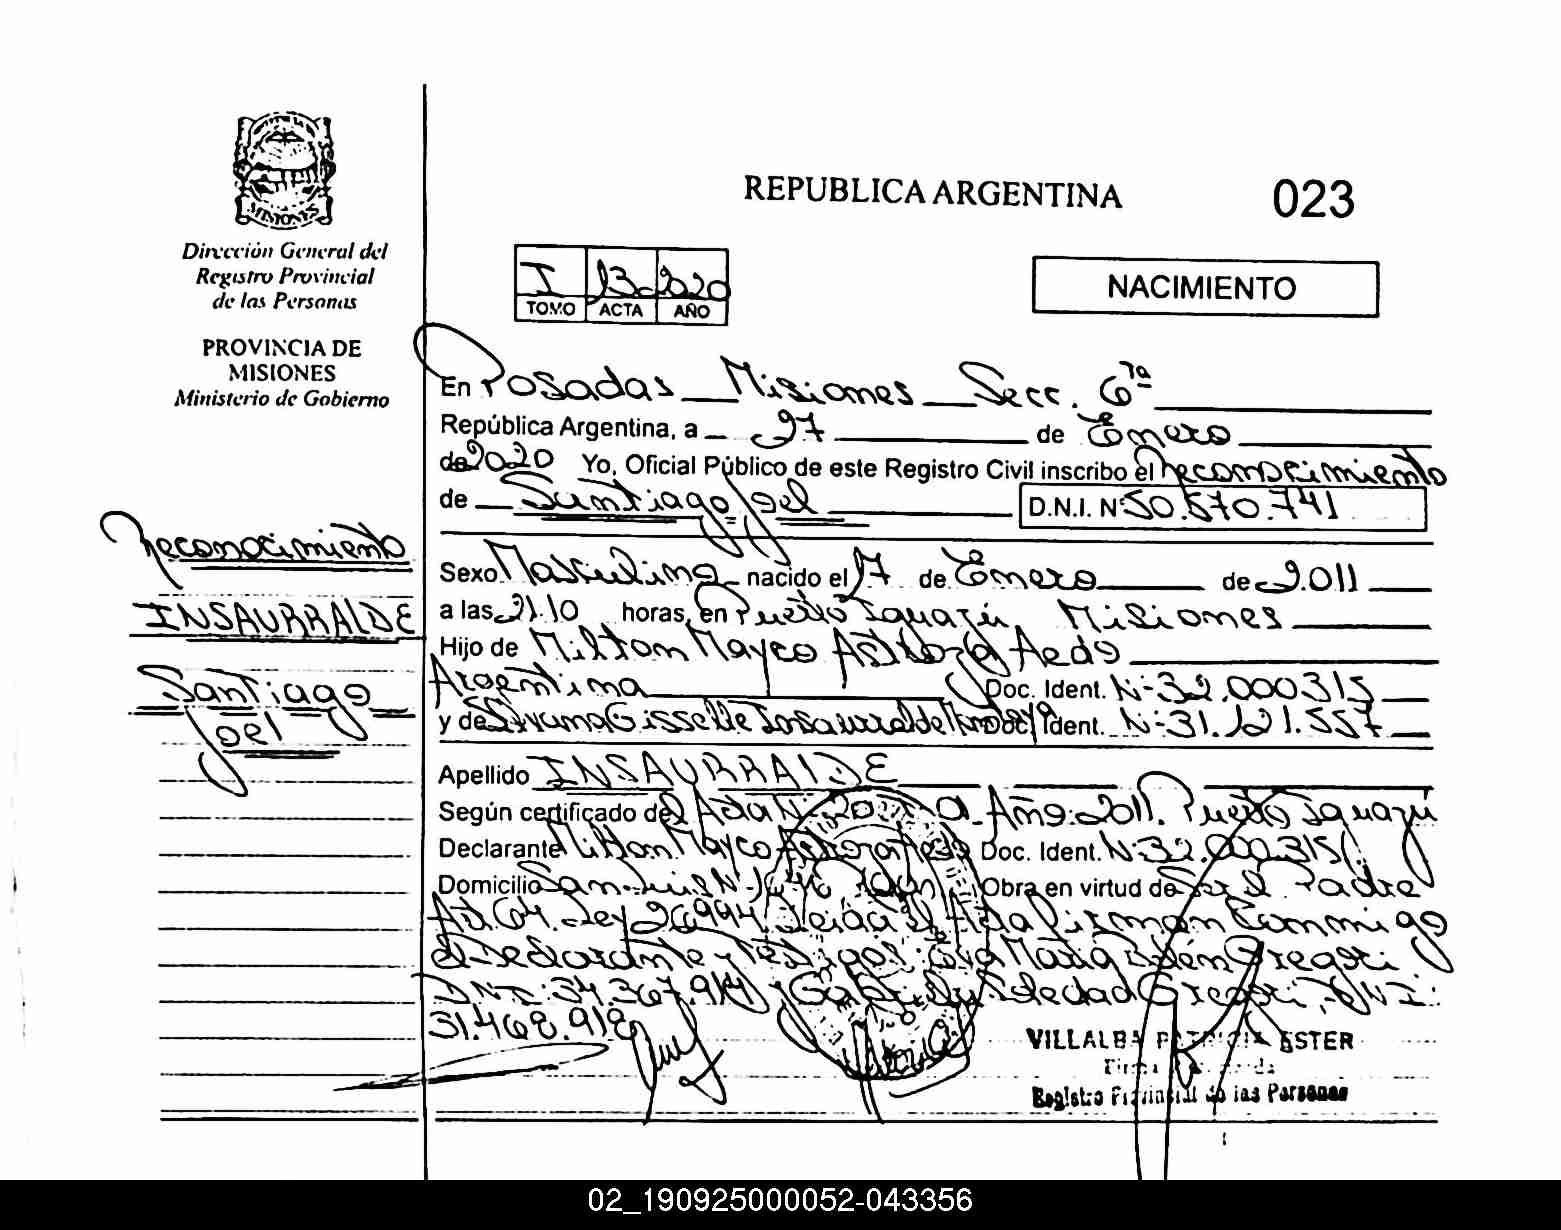 REPUBLICA ARGENTINA
023
MISIONES
Dirección General del
Registro Provincial
de las Personas
PROVINCIA DE
MISIONES
Ministerio de Gobierno
I 13 2020
TOMO ACTA AÑO
NACIMIENTO
En Posadas Misiones Secc. 6ta
República Argentina, a 27 de Enero
de 2020 Yo, Oficial Público de este Registro Civil inscribo el reconocimiento
de Santiago Joel D.N.I. N 50.570.741
Reconocimiento
INSAURRALDE
Santiago
Joel
Sexo Masculino nacido el 17 de Enero de 2.011
a las 21.10 horas, en Puerto Iguazú Misiones
Hijo de Milton Mayco Aedo
Argentina Doc. Ident. N° 32.000.315
y de Silvana Gisselle Insaurralde Doc. Ident. N° 31.121.557
Apellido INSAURRALDE
Según certificado del Acta N° Año 2011. Puerto Iguazú
Declarante Milton Mayco Doc. Ident. N° 32.000.315
Domicilio San Luis N° Obra en virtud de Ser el Padre
Art. 64 Ley 26994 Leída el Acta firman Conmigo
el Declarante y Testigos Eva María Belén
DNI: 34.367.914 y Gabriela Soledad DNI:
31.468.918
VILLALBA PATRICIA ESTER
Registro Provincial de las Personas
02_190925000052-043356